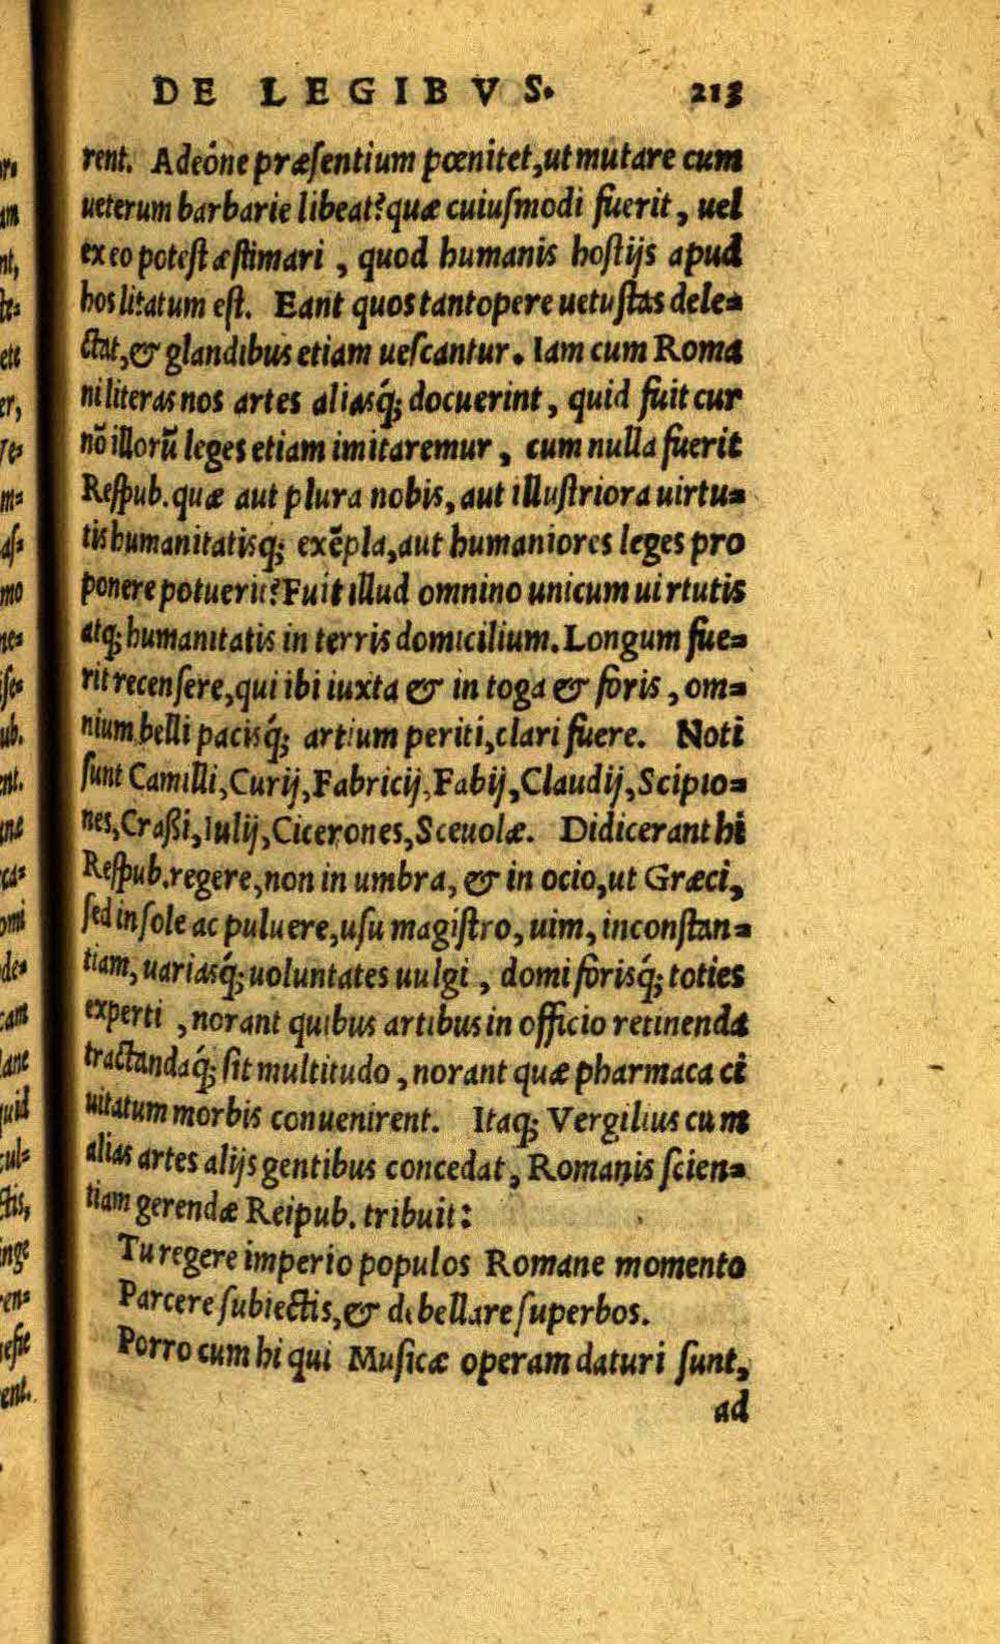 DE LEGIBVS. 213
rent. Adeóne præſentium pœnitet, ut mutare cum
ueterum barbarie libeat? quæ cuiuſmodi fuerit, uel
ex eo poteſt æſtimari, quod humanis hoſtijs apud
hos litatum eſt. Eant quos tantopere uetuſtas dele=
ctat, & glandibus etiam ueſcantur. Iam cum Roma
ni literas nos artes aliasq́; docuerint, quid fuit cur
nõ illorũ leges etiam imitaremur, cum nulla fuerit
Reſpub. quæ aut plura nobis, aut illuſtriora uirtu=
tis humanitatisq; exẽpla, aut humaniores leges pro
ponere potuerit? Fuit illud omnino unicum uirtutis
atq; humanitatis in terris domicilium. Longum fue=
rit recenſere, qui ibi iuxta & in toga & foris, om=
nium belli pacisq́; artium periti, clari fuere. Noti
ſunt Camilli, Curij, Fabricij, Fabij, Claudij, Scipio=
nes, Craßi, Iulij, Cicerones, Sceuolæ. Didicerant hi
Reſpub. regere, non in umbra, & in ocio, ut Græci,
ſed in ſole ac puluere, uſu magiſtro, uim, inconſtan=
tiam, uariasq́; uoluntates uulgi, domi forisq́; toties
experti, norant quibus artibus in officio retinenda
tractandaq́; ſit multitudo, norant quæ pharmaca ci
uitatum morbis conuenirent. Itaq; Vergilius cum
alias artes alijs gentibus concedat, Romanis ſcien=
tiam gerendæ Reipub. tribuit:
Tu regere imperio populos Romane momento
Parcere ſubiectis, & debellare ſuperbos.
Porro cum hi qui Muſicæ operam daturi ſunt,
ad